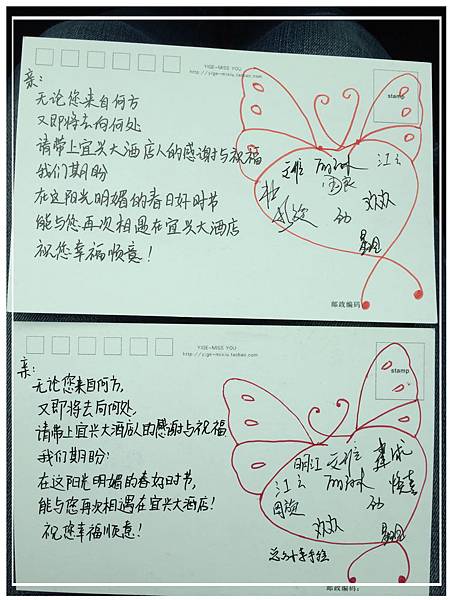 YIGE-MISS YOU
http://yige-mixiu.taobao.com
stamp
亲：
无论您来自何方
又即将去向何处
请带上宜兴大酒店人的感谢与祝福
我们期盼
在这阳光明媚的春日好时节
能与您再次相遇在宜兴大酒店
祝您幸福顺意！
江云
欢欢
邮政编码：
YIGE-MISS YOU
http://yige-mixiu.taobao.com
stamp
亲：
无论您来自何方，
又即将去向何处，
请带上宜兴大酒店人的感谢与祝福
我们期盼：
在这阳光明媚的春好时节，
能与您再次相遇在宜兴大酒店！
祝您幸福顺意！
明江
江云
欢欢
邮政编码：